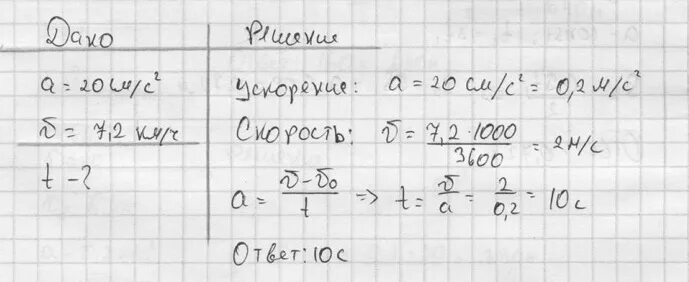 Дано
a = 20 см/с²
v = 7,2 км/ч
t - ?
Решение
Ускорение: a = 20 см/с² = 0,2 м/с²
Скорость: v = 7,2·1000/3600 = 2 м/с
a = v-v₀/t => t = v/a = 2/0,2 = 10 с
Ответ: 10 с